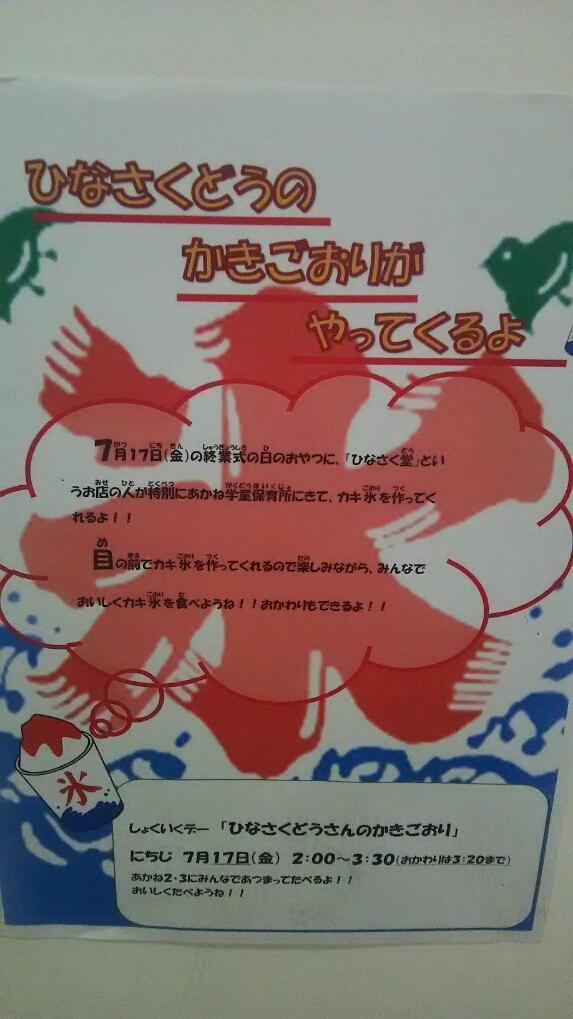 ひなさくどうの
かきごおりが
やってくるよ
7月17日(金)の終業式の日のおやつに、「ひなさく堂」とい
うお店の人が特別にあかね学童保育所にきて、カキ氷を作ってく
れるよ！！
目の前でカキ氷を作ってくれるので楽しみながら、みんなで
おいしくカキ氷を食べようね！！おかわりもできるよ！！
氷
しょくいくデー 「ひなさくどうさんのかきごおり」
にちじ 7月17日(金) 2:00～3:30(おかわりは3:20まで)
あかね2・3にみんなであつまってたべるよ！！
おいしくたべようね！！